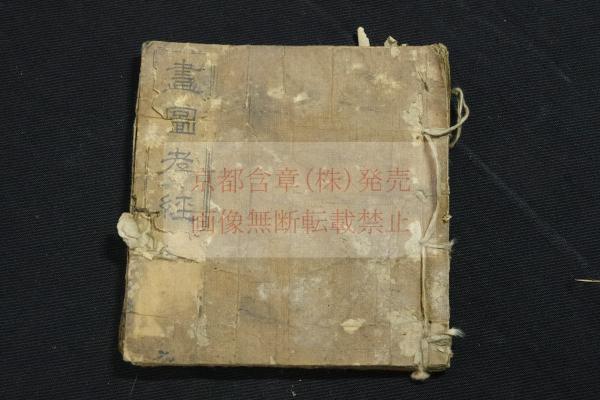 畫圖孝經
京都含章(株)発売
画像無断転載禁止